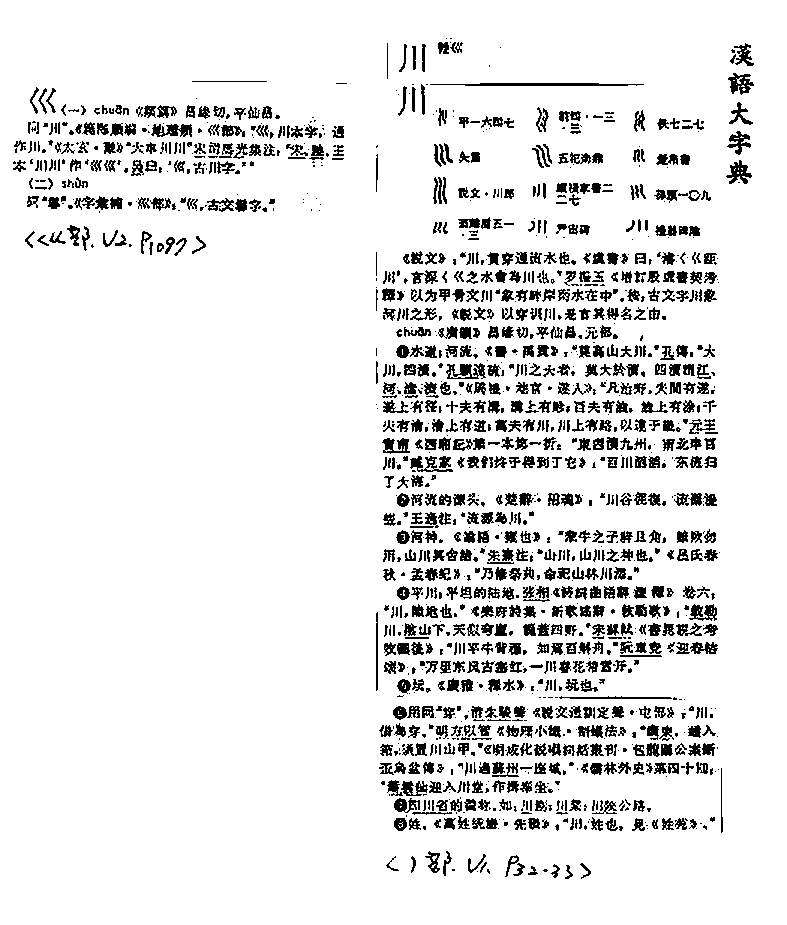 漢語大字典
巛 (一) chuān《廣韻》昌緣切,平仙昌。
同“川”。《篇海類編·地理類·巛部》:“巛,川本字,通
作川。”《太玄·》“大車川川”宋司馬光集注:“宋、陸、王
本‘川川’作‘巛巛’。吴曰:‘巛,古川字。’”
(二) shùn
“”。《字彙補·巛部》:“巛,古文字。”
<巛部. V2. P1097>
川 巛
川
甲一六四七
前四·一三·三
佚七二七
矢簋
五祀衛鼎
楚帛書
説文·川部
二七
孫臏一〇九
五一·三
尹宙碑
《説文》:“川,貫穿通流水也。《虞書》曰:‘濬く巜距
川’,言深く巜之水會為川也。”羅振玉《增訂殷虚書契考
釋》以為甲骨文川“象有畔岸而水在中”。按:古文字川象
河川之形,《説文》以穿訓川,是言其得名之由。
chuān《廣韻》昌緣切,平仙昌。元部。
❶水道;河流。《書·禹貢》:“奠高山大川。”孔傳:“大
川,四瀆。”孔穎達疏:“川之大者,莫大於瀆。四瀆謂江、
河、淮、濟也。”《周禮·地官·遂人》:“凡治野,夫間有遂,
遂上有徑;十夫有溝,溝上有畛;百夫有洫,洫上有涂;千
夫有澮,澮上有道;萬夫有川,川上有路,以達于畿。”元王
實甫《西廂記》第一本第一折:“東西潰九州,南北串百
川。”臧克家《我们终于得到了它》:“百川滔滔,东流归
了大海。”
❷河流的源头。《楚辭·招魂》:“川谷徑復,流潺湲
些。”王逸注:“流源為川。”
❸河神。《論語·雍也》:“犂牛之子騂且角,雖欲勿
用,山川其舍諸。”朱熹注:“山川,山川之神也。”《吕氏春
秋·孟春紀》:“乃修祭典,命祀山林川澤。”
❹平川;平坦的陆地。张相《詩詞曲語辭匯釋》卷六:
“川,陸地也。”《樂府詩集·新歌謡辭·敕勒歌》:“敕勒
川,陰山下,天似穹廬,籠蓋四野。”宋蘇軾《書晁説之考
牧圖後》:“川平牛背穩,如駕百斛舟。”阮章竞《迎春桔
颂》:“万里东风古塞红,一川春花帶雪开。”
❺坑。《廣雅·釋水》:“川,坑也。”
❻用同“穿”。清朱駿聲《説文通訓定聲·屯部》:“川,
借為穿。”明方以智《物理小識·》:“廣東,
須置川山甲。”《明成化説唱詞話叢刊·包龍圖公案斷
歪烏盆傳》:“川過蘇州一座城。”《儒林外史》第四十回:
“蕭雲仙迎入川堂,作揖奉坐。”
❼四川省的简称。如:川；川；川公路。
❽姓。《萬姓統譜·先韻》:“川,姓也。見《姓苑》。”
<丿部. V1. P32-33>